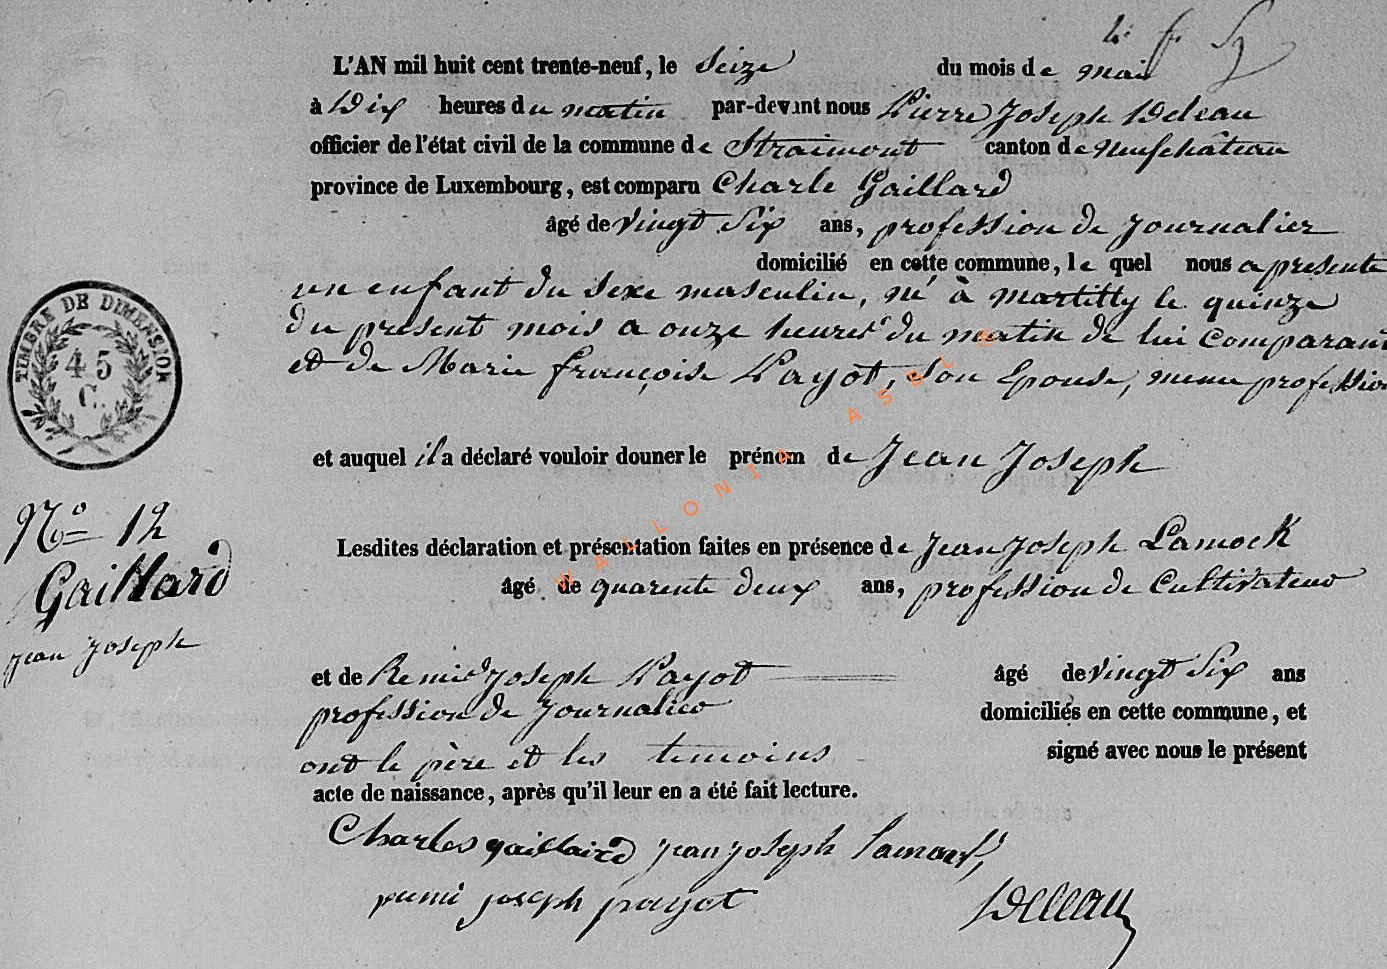 L'AN mil huit cent trente-neuf, le Seize du mois de mai
à Dix heures du matin par-devant nous Pierre Joseph Deleau
officier de l'état civil de la commune de Straimont canton de neufchâteau
province de Luxembourg, est comparu Charle Gaillard
âgé de vingt Six ans, profession de Journalier
domicilié en cette commune, le quel nous a presente
un enfant du Sexe masculin, né à Martilly le quinze
du present mois a onze heures du matin de lui Comparant
et de Marie françoise Payot, Son Epouse, meme profession
et auquel il a déclaré vouloir donner le prénom de Jean Joseph
Lesdites déclaration et présentation faites en présence de Jean Joseph Lamock
âgé de quarente deux ans, profession de Cultivateur
et de Remi Joseph Payot âgé de vingt Six ans
profession de Journalier domiciliés en cette commune, et
ont le père et les temoins signé avec nous le présent
acte de naissance, après qu'il leur en a été fait lecture.
Charles gaillaird jean joseph
remi joseph payot Deleau
TIMBRE DE DIMENSION
45
C.
No 12
Gaillard
jean Joseph
WALLONIA ASBL ©